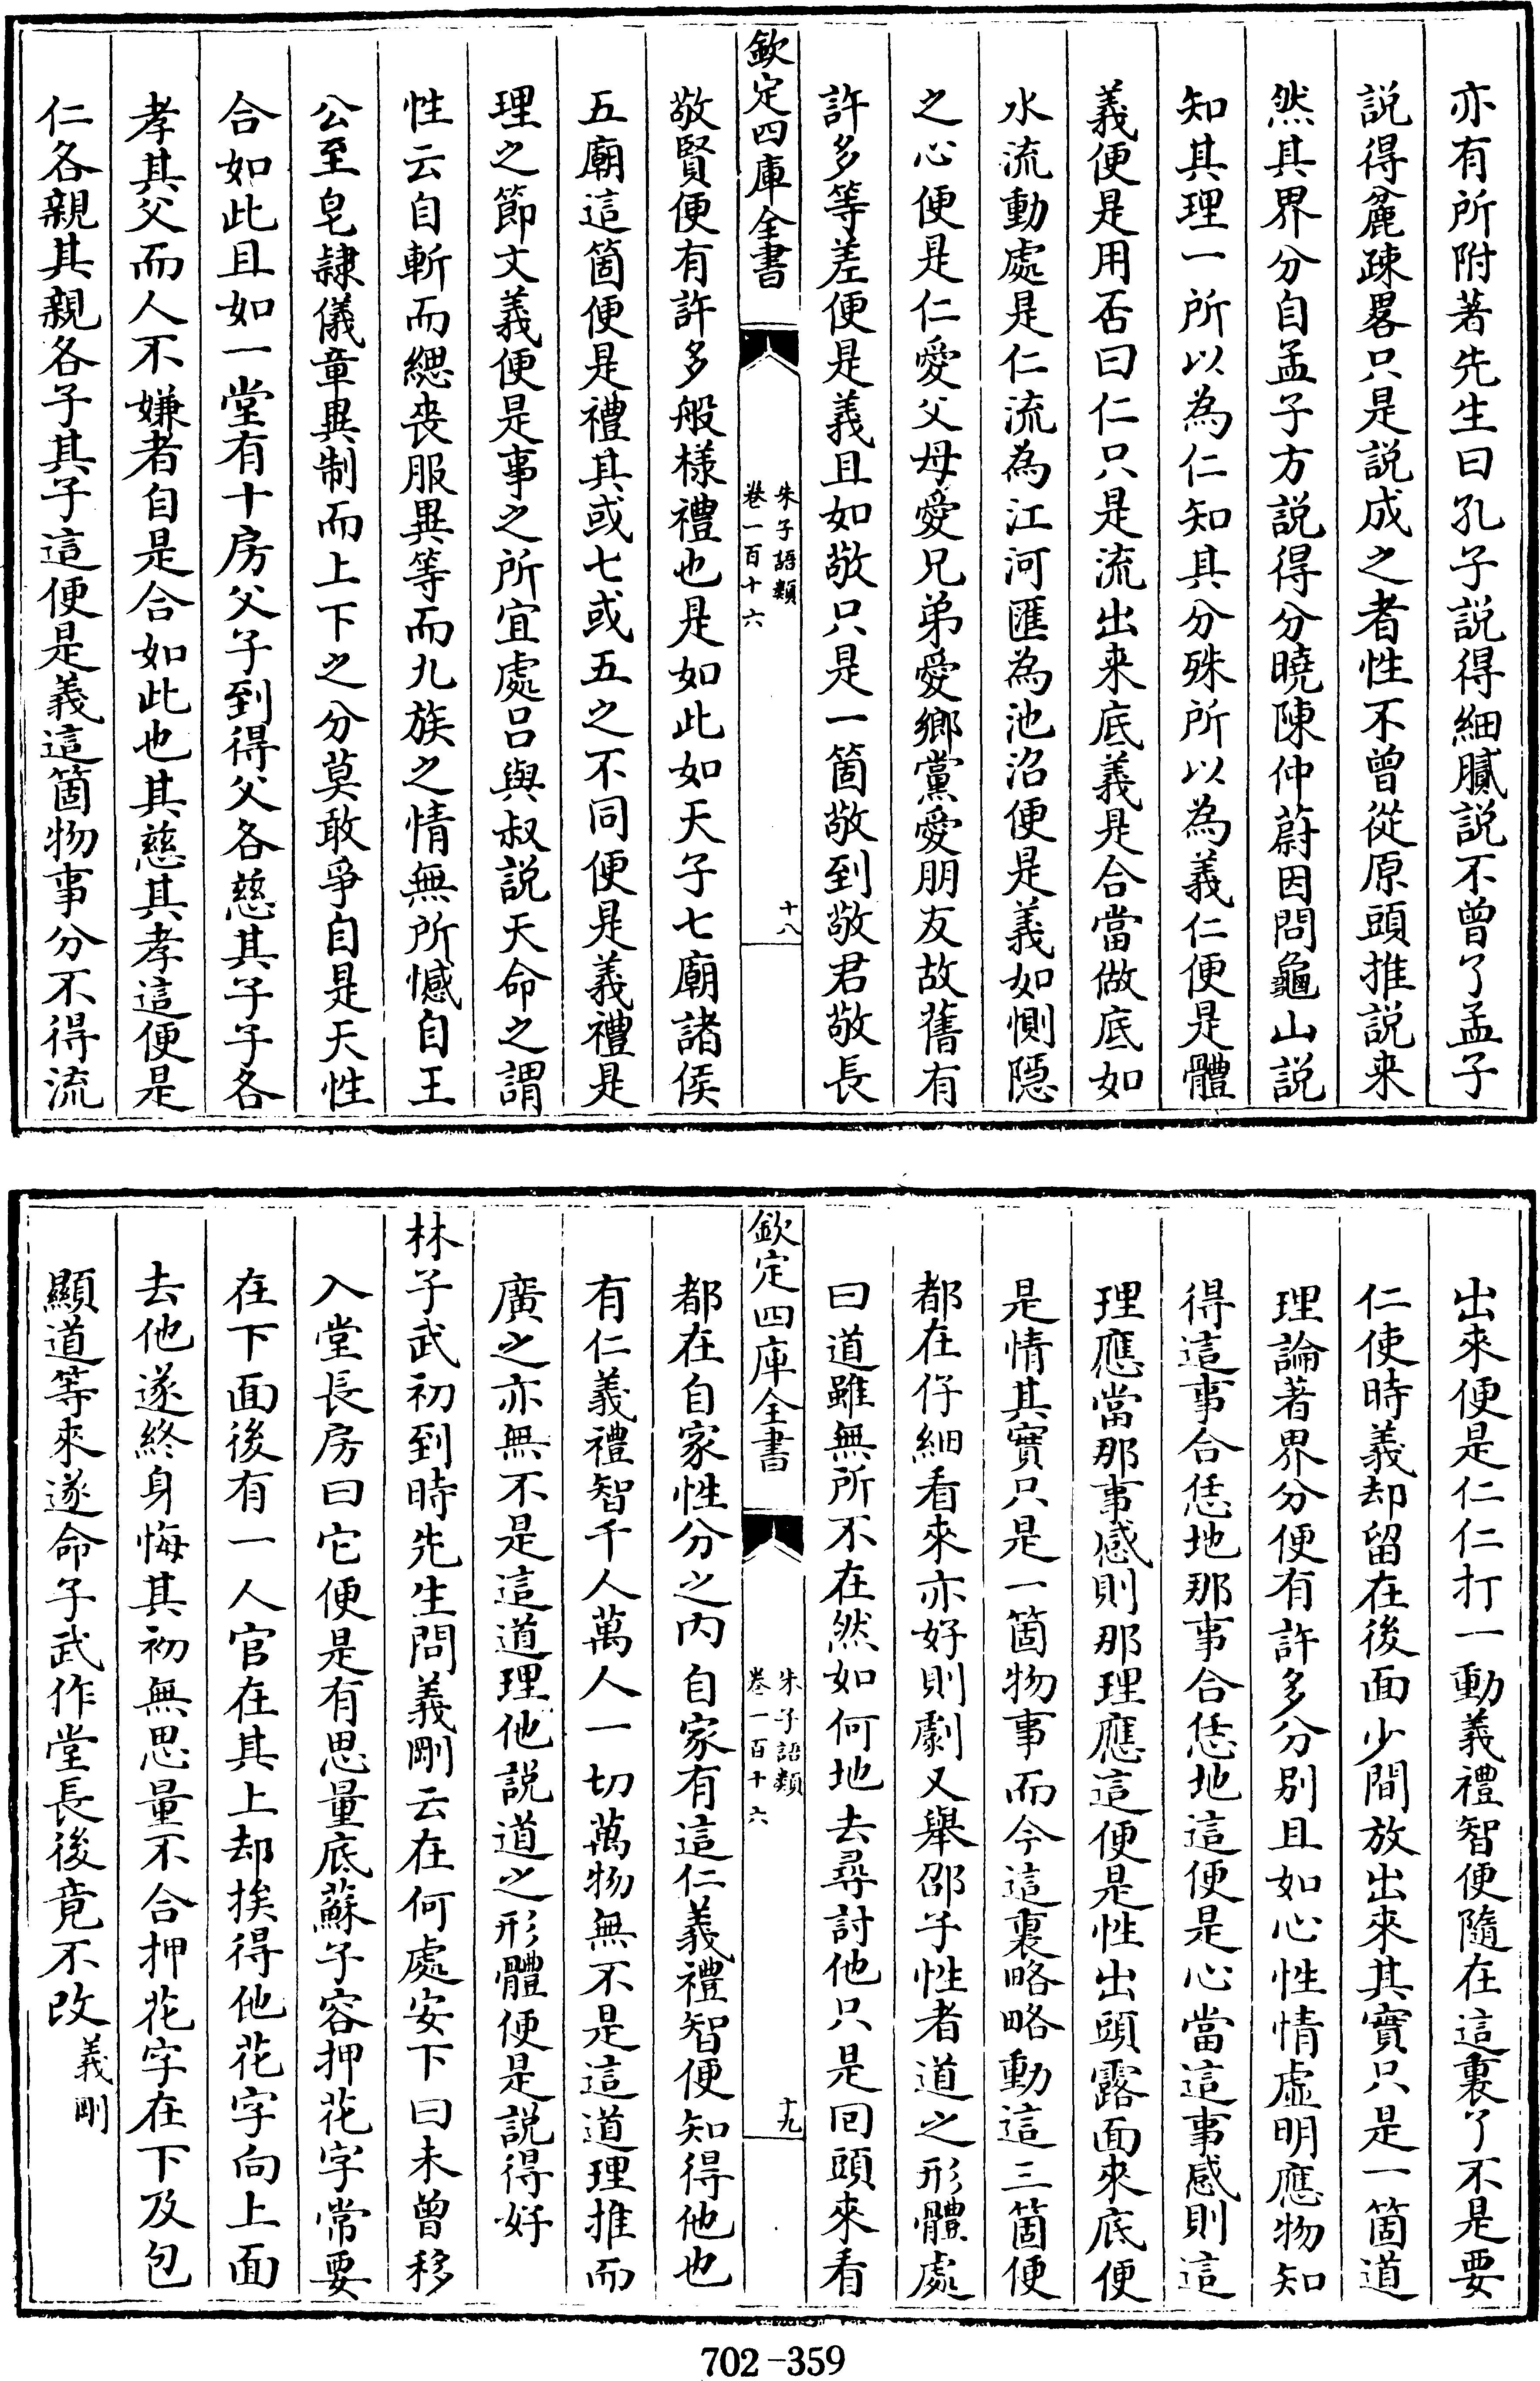 亦有所附著先生曰孔子説得細膩説不曾了孟子
説得麄疎畧只是説成之者性不曾從原頭推説来
然其界分自孟子方説得分曉陳仲蔚因問龜山説
知其理一所以為仁知其分殊所以為義仁便是體
義便是用否曰仁只是流出来底義是合當做底如
水流動處是仁流為江河匯為池沼便是義如惻隠
之心便是仁愛父母愛兄弟愛鄉黨愛朋友故舊有
許多等差便是義且如敬只是一箇敬到敬君敬長
欽定四庫全書
朱子語類
卷一百十六
十八
敬賢便有許多般様禮也是如此如天子七廟諸侯
五廟這箇便是禮其或七或五之不同便是義禮是
理之節文義便是事之所宜處吕與叔説天命之謂
性云自斬而緦丧服異等而九族之情無所憾自王
公至皂隷儀章異制而上下之分莫敢爭自是天性
合如此且如一堂有十房父子到得父各慈其子子各
孝其父而人不嫌者自是合如此也其慈其孝這便是
仁各親其親各子其子這便是義這箇物事分不得流
出來便是仁仁打一動義禮智便隨在這裏了不是要
仁使時義却留在後面少間放出來其實只是一箇道
理論著界分便有許多分别且如心性情虚明應物知
得這事合恁地那事合恁地這便是心當這事感則這
理應當那事感則那理應這便是性出頭露面來底便
是情其實只是一箇物事而今這裏略略動這三箇便
都在仔細看來亦好則劇又舉邵子性者道之形體處
曰道雖無所不在然如何地去尋討他只是回頭來看
欽定四庫全書
朱子語類
卷一百十六
十九
都在自家性分之内自家有這仁義禮智便知得他也
有仁義禮智千人萬人一切萬物無不是這道理推而
廣之亦無不是這道理他説道之形體便是説得好
林子武初到時先生問義剛云在何處安下曰未曾移
入堂長房曰它便是有思量底蘇子容押花字常要
在下面後有一人官在其上却挨得他花字向上面
去他遂終身悔其初無思量不合押花字在下及包
顯道等來遂命子武作堂長後竟不改義剛
702-359